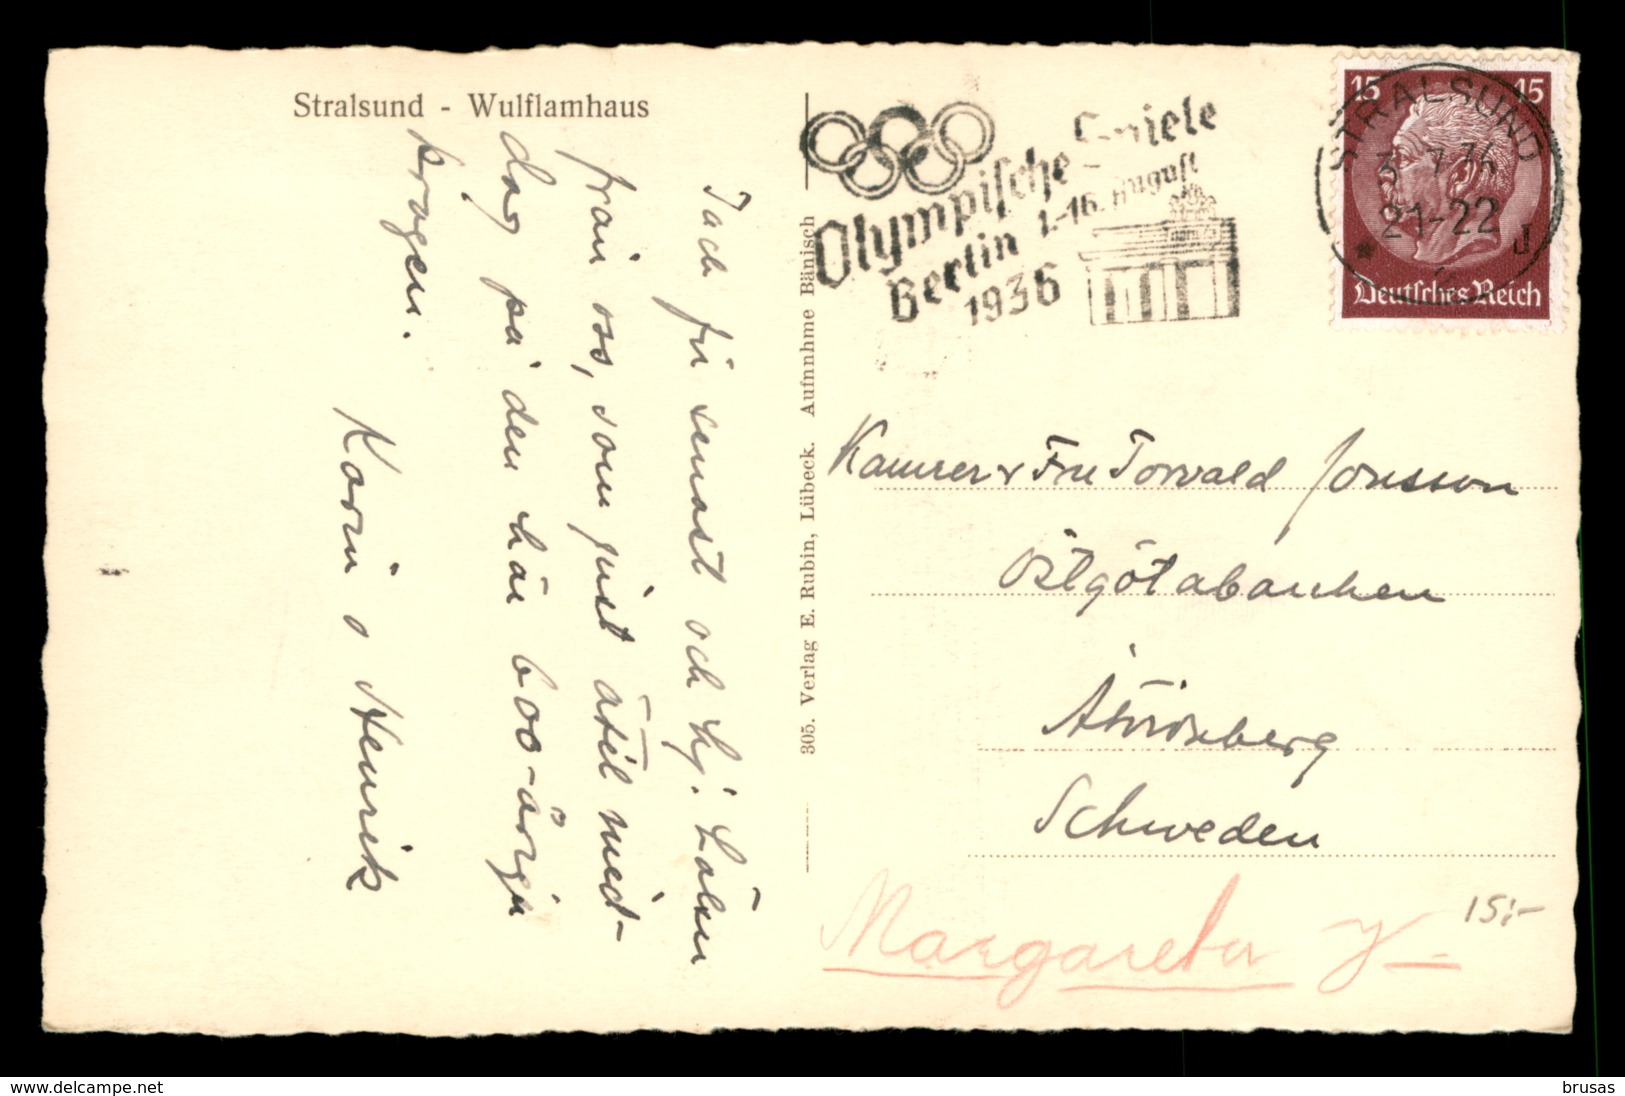 Stralsund - Wulflamhaus
Tack för senast och hj. hälsn
från oss, som just ätit mid-
dag på den här 600-åriga
krogen.
Karin o Henrik
305. Verlag E. Rubin, Lübeck. Aufnnhme Bänisch
Olympische Spiele
Berlin 1.-16. August
1936
STRALSUND
3 7.36
21-22
J
15 15
Deutsches Reich
Kamrer o Fru Torvald Jonsson
Östgötabanken
Åtvidaberg
Schweden
Margareta J
15:-
delcampe.net
brusas